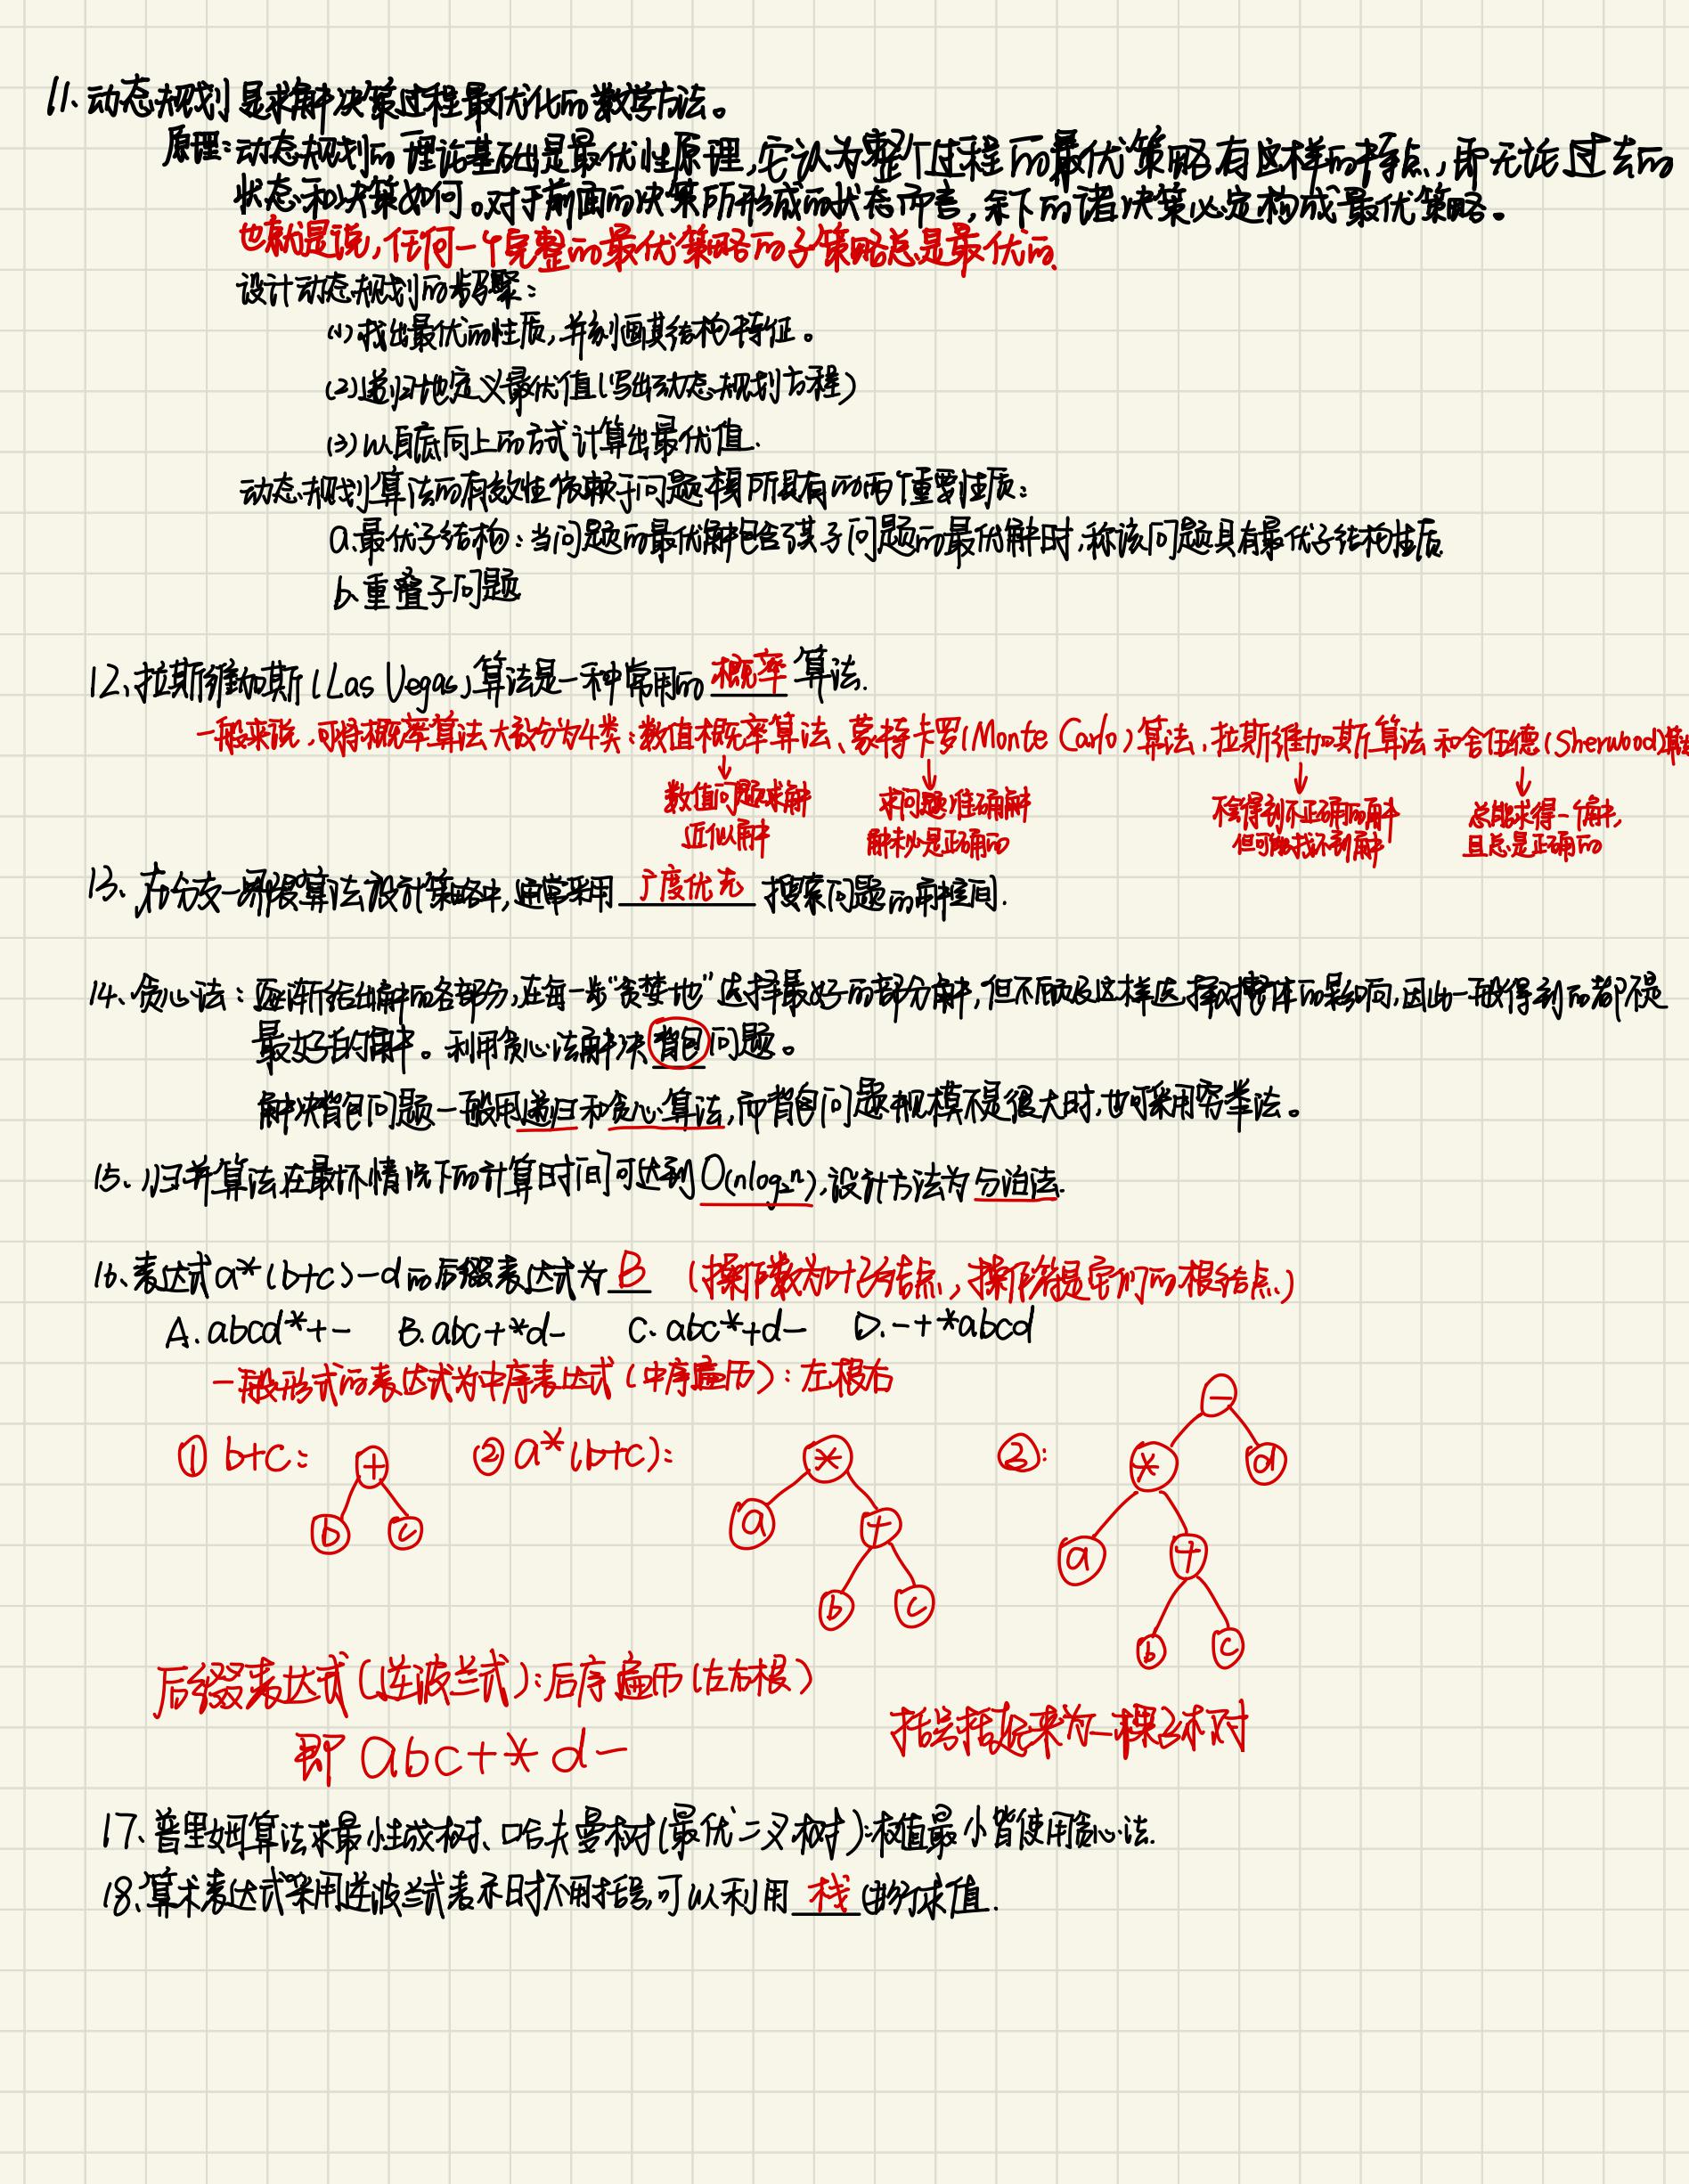 11、动态规划是求解决策过程最优化的数学方法。
原理：动态规划的理论基础是最优性原理，它认为整个过程的最优策略有这样的特点，即无论过去的
状态和决策如何。对于前面的决策所形成的状态而言，余下的诸决策必定构成最优策略。
也就是说，任何一个完整的最优策略的子策略总是最优的.
设计动态规划的步骤：
(1)找出最优的性质，并刻画其结构特征。
(2)递归地定义最优值(写出动态规划方程)
(3)以自底向上的方式计算出最优值.
动态规划算法的有效性依赖于问题本身所具有的两个重要性质：
a.最优子结构：当问题的最优解包含了其子问题的最优解时，称该问题具有最优子结构性质
b、重叠子问题
12、拉斯维加斯(Las Vegas)算法是一种常用的概率算法.
一般来说，可将概率算法大致分为4类：数值概率算法、蒙特卡罗(Monte Carlo)算法、拉斯维加斯算法和舍伍德(Sherwood)算法
↓ ↓ ↓ ↓
数值问题求解 求问题准确解 不会得到不正确的解 总能求得一个解，
近似解 解未必是正确的 但可能找不到解 且总是正确的
13、在分支-界限算法设计策略中，通常采用 广度优先 搜索问题的解空间.
14、贪心法：逐渐给出解的各部分，在每一步“贪婪地”选择最好的部分解，但不顾及这样选择对整体的影响，因此一般得到的都不是
最好的解。利用贪心法解决背包问题。
解决背包问题一般用递归和贪心算法，而背包问题规模不是很大时，也可采用穷举法。
15、归并算法在最坏情况下的计算时间可达到O(nlog₂n)，设计方法为分治法.
16、表达式a*(b+c)-d的后缀表达式为 B (操作数为叶子结点，操作符是它们的根结点)
A.abcd*+- B.abc+*d- C.abc*+d- D.-+*abcd
一般形式的表达式为中序表达式(中序遍历)：左根右
① b+c： ② a*(b+c)： ③：
+ * -
b c a + * d
b c a +
b c
后缀表达式(逆波兰式)：后序遍历(左右根)
括号括起来为一棵子树
即 abc+*d-
17、普里姆算法求最小生成树、哈夫曼树(最优二叉树)：权值最小皆使用贪心法.
18、算术表达式采用逆波兰式表示时不用括号，可以利用 栈 进行求值.